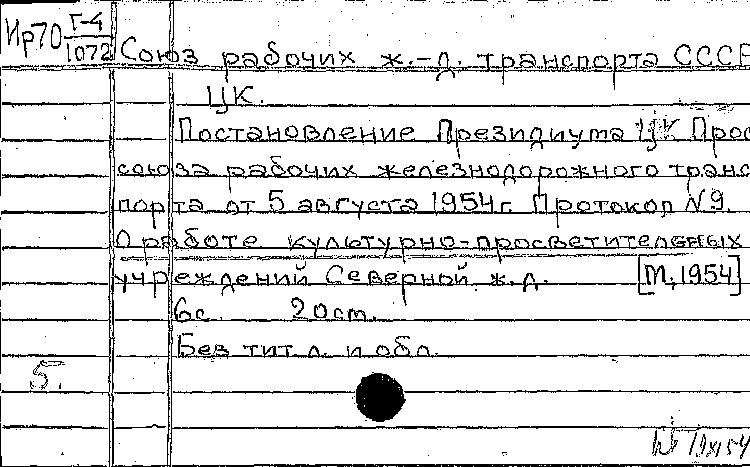 Ир70 Г-4
1072
Союз рабочих ж.-д. транспорта СССР
ЦК.
Постановление Президиума ЦК Проф
союза рабочих железнодорожного транс
порта от 5 августа 1954г. Протокол №9.
О работе культурно-просветительных
учреждений Северной ж.д. [М, 1954]
6с. 20см.
Без тит. л. и обл.
5.